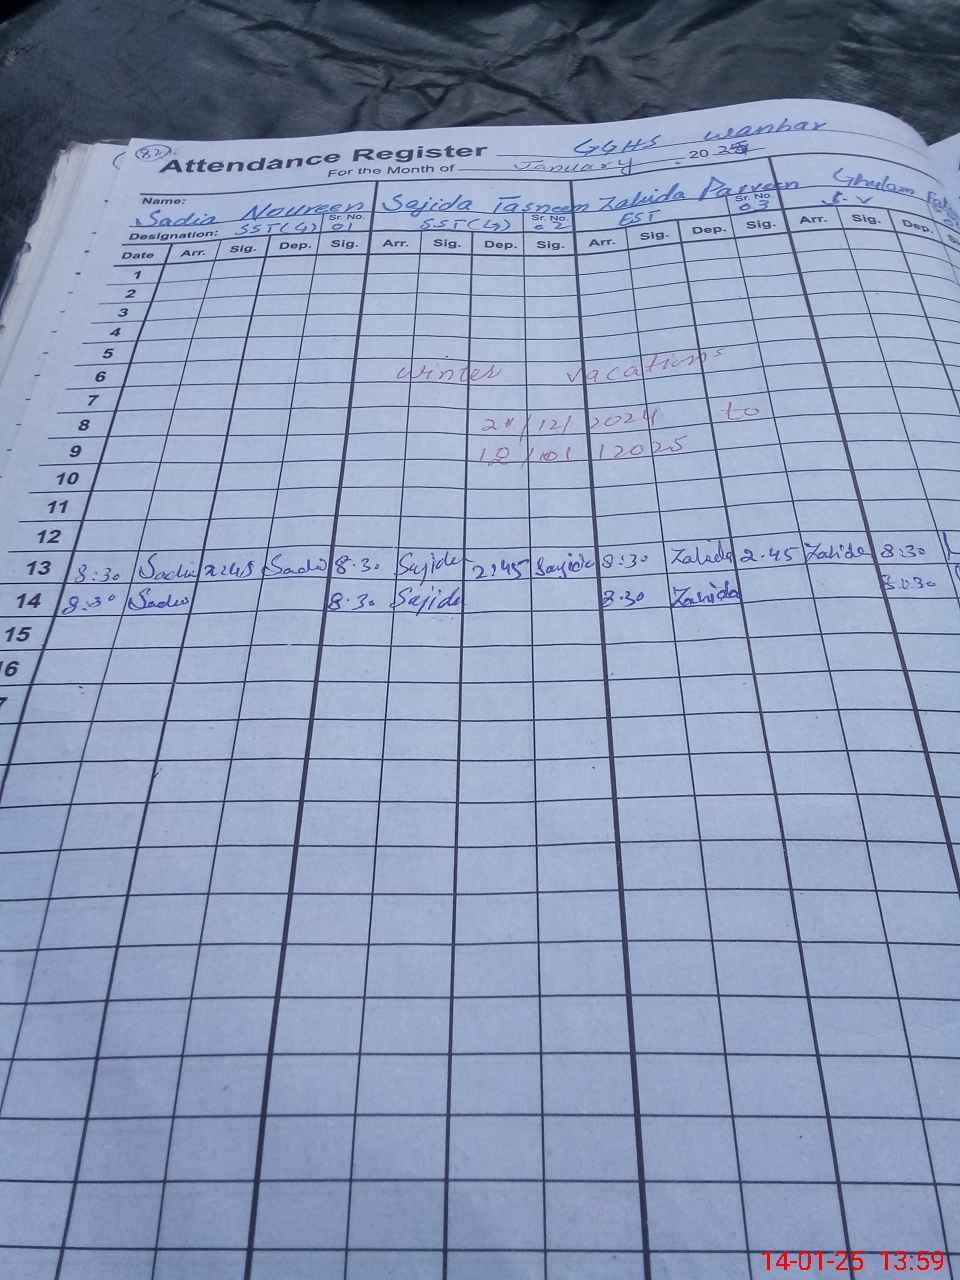 82
Attendance Register GGHS wanhar
For the Month of January 2025
Name: Sadia Noureen Sajida Tasneem Zahida Parveen Ghulam
Designation: SST(G) Sr. No. 01 SST(G) Sr. No. 02 EST Sr. No. 03 S.V
Date Arr. Sig. Dep. Sig. Arr. Sig. Dep. Sig. Arr. Sig. Dep. Sig. Arr. Sig. Dep.
1
2
3
4
5
6 winter vacations
7
8 /12/2024 to
9 12/01/2025
10
11
12
13 8:30 Sadia 2:45 Sadia 8:30 Sajida 2:45 Sajida 8:30 Zahida 2.45 Zahida 8:30
14 8:30 Sadia 8:30 Sajida 8.30 Zahida 8:30
15
16
7
14-01-25 13:59